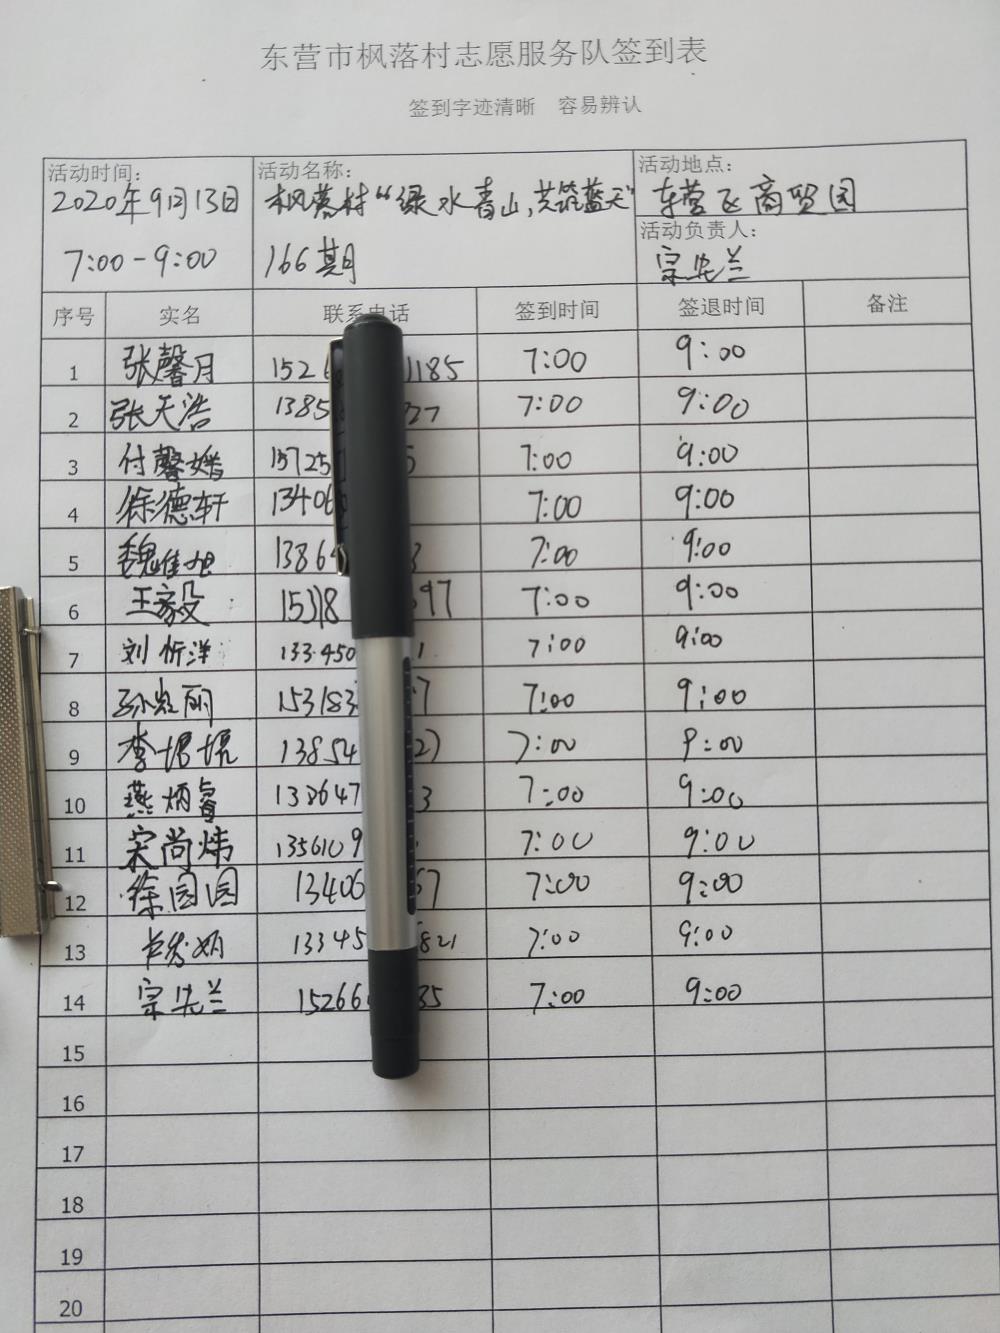 东营市枫落村志愿服务队签到表
签到字迹清晰 容易辨认
活动时间: 活动名称: 活动地点:
2020年9月13日 枫落村“绿水青山,共筑蓝天” 东营区商贸园
活动负责人:
7:00-9:00 166期 宗先兰
序号 实名 联系电话 签到时间 签退时间 备注
1 张馨月 152 1185 7:00 9:00
2 张天浩 1385 27 7:00 9:00
3 付馨嫱 15725 7:00 9:00
4 徐德轩 13406 7:00 9:00
5 魏佳旭 1386 3 7:00 9:00
6 王家毅 15318 97 7:00 9:00
7 刘忻洋 133450 1 7:00 9:00
8 153183 7 7:00 9:00
9 李琨琨 13854 27 7:00 9:00
10 燕炳睿 132647 3 7:00 9:00
11 宋尚炜 1356109 7:00 9:00
12 徐园园 13406 57 7:00 9:00
13 13345 821 7:00 9:00
14 宗先兰 15266 85 7:00 9:00
15
16
17
18
19
20